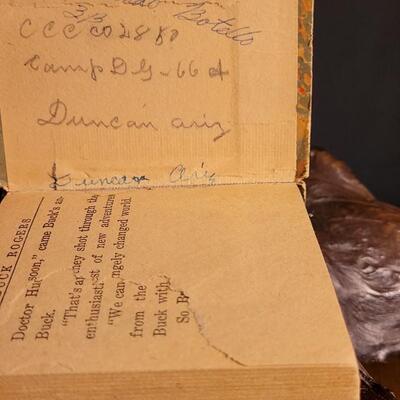 Botello
CCC CO 2880
Camp DG-66 A
Duncan ariz
Duncan Ariz
BUCK ROGERS
Doctor Hu soon," came Buck's
Buck.
"That's a ey shot through the
enthusiast st of new adventures
"We can ngely changed world.
from the
Buck with
So B